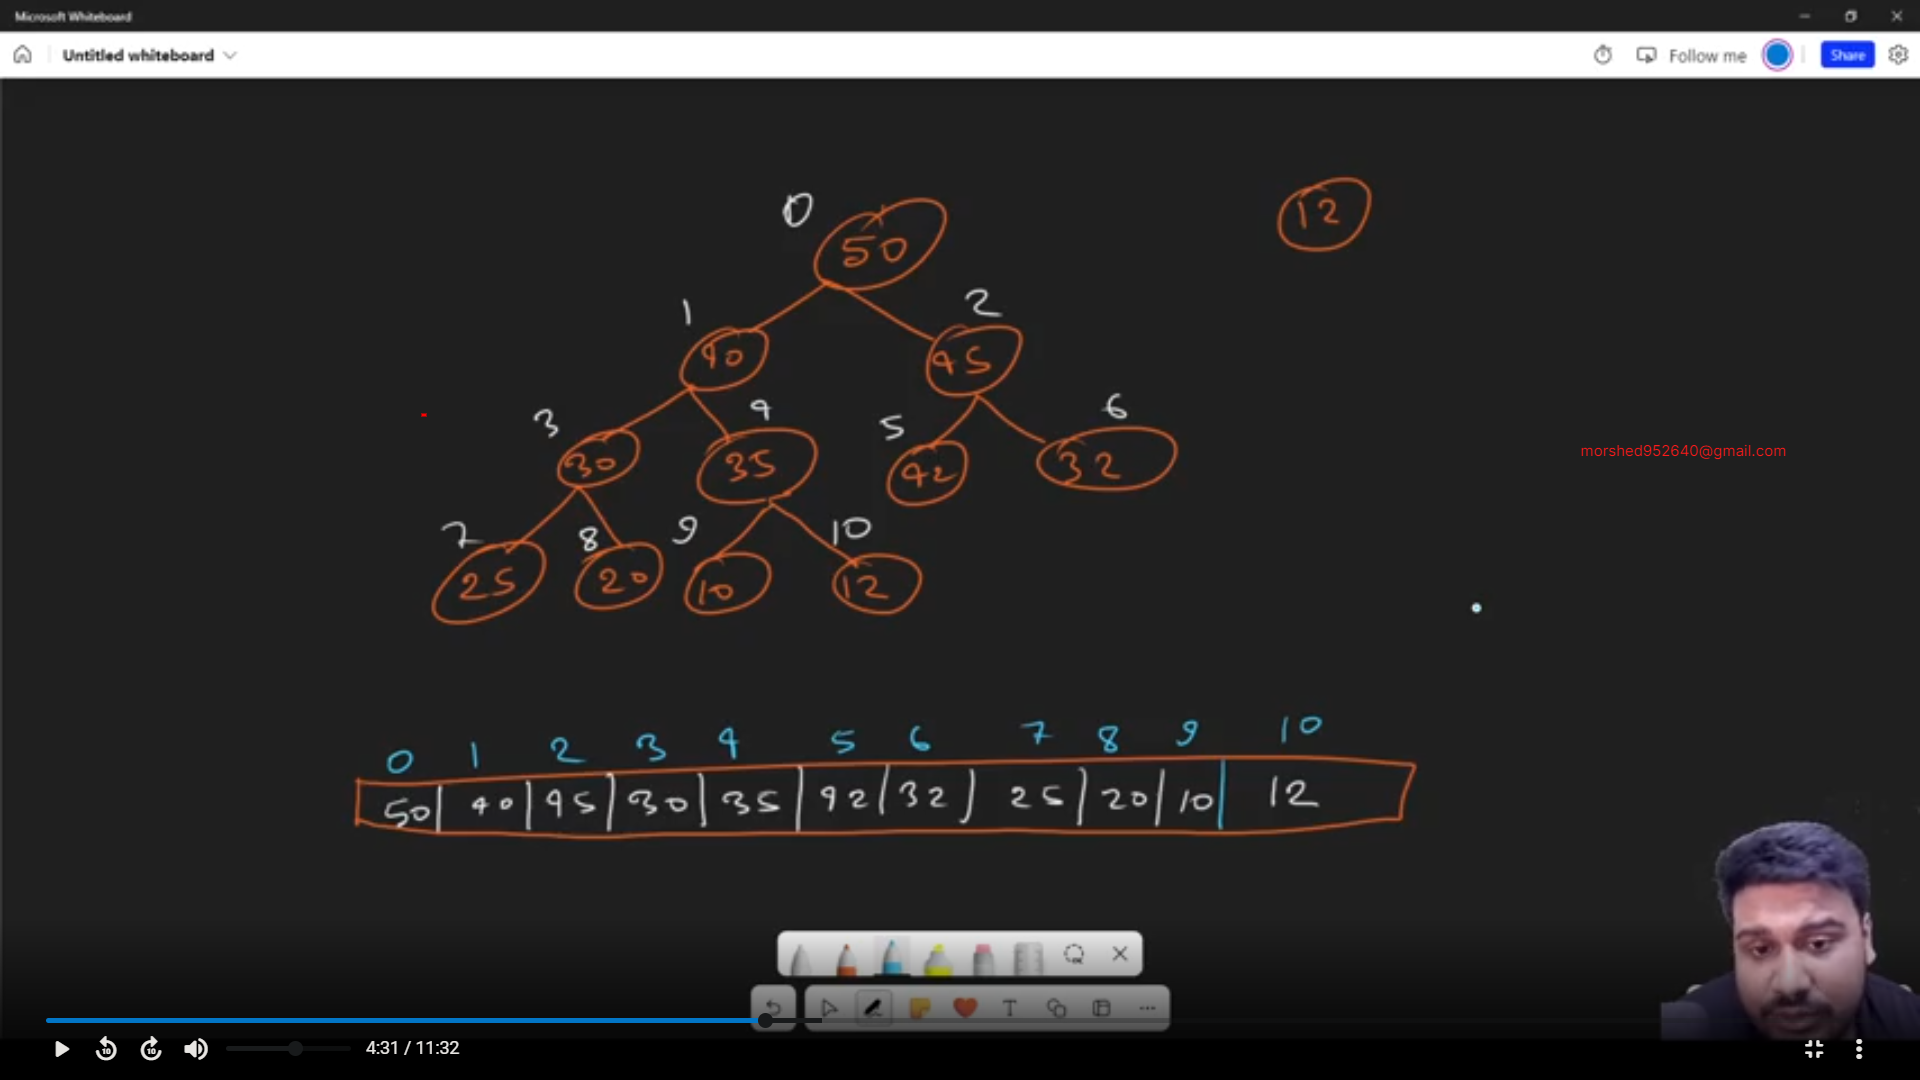 Microsoft Whiteboard
Untitled whiteboard
Follow me
Share
0
50
12
1
2
40
45
3
4
5
6
30
35
42
32
7
8
9
10
25
20
10
12
morshed952640@gmail.com
0 1 2 3 4 5 6 7 8 9 10
50 40 45 30 35 42 32 25 20 10 12
T
10
10
4:31 / 11:32